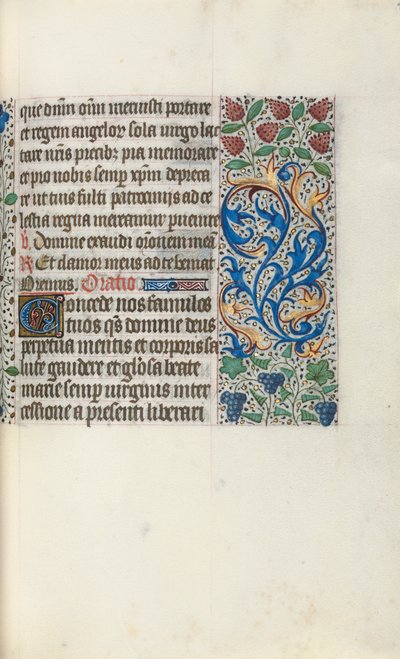 que dnm oim meruisti portare
et regem angelor sola virgo lac
tare nris precib pia memorare
et pro nobis semp xpm depreca
re ut tuis fulti patrocinijs ad ce
lestia regna mereamur puenire
V. Domine exaudi oronem mea
R Et clamor meus ad te veniat
Oremus. Oratio
Concede nos famulos
tuos qs domine deus
perpetua mentis et corporis sa
nite gaudere et glosa beate
marie semp virginis inter
cessione a presenti liberari